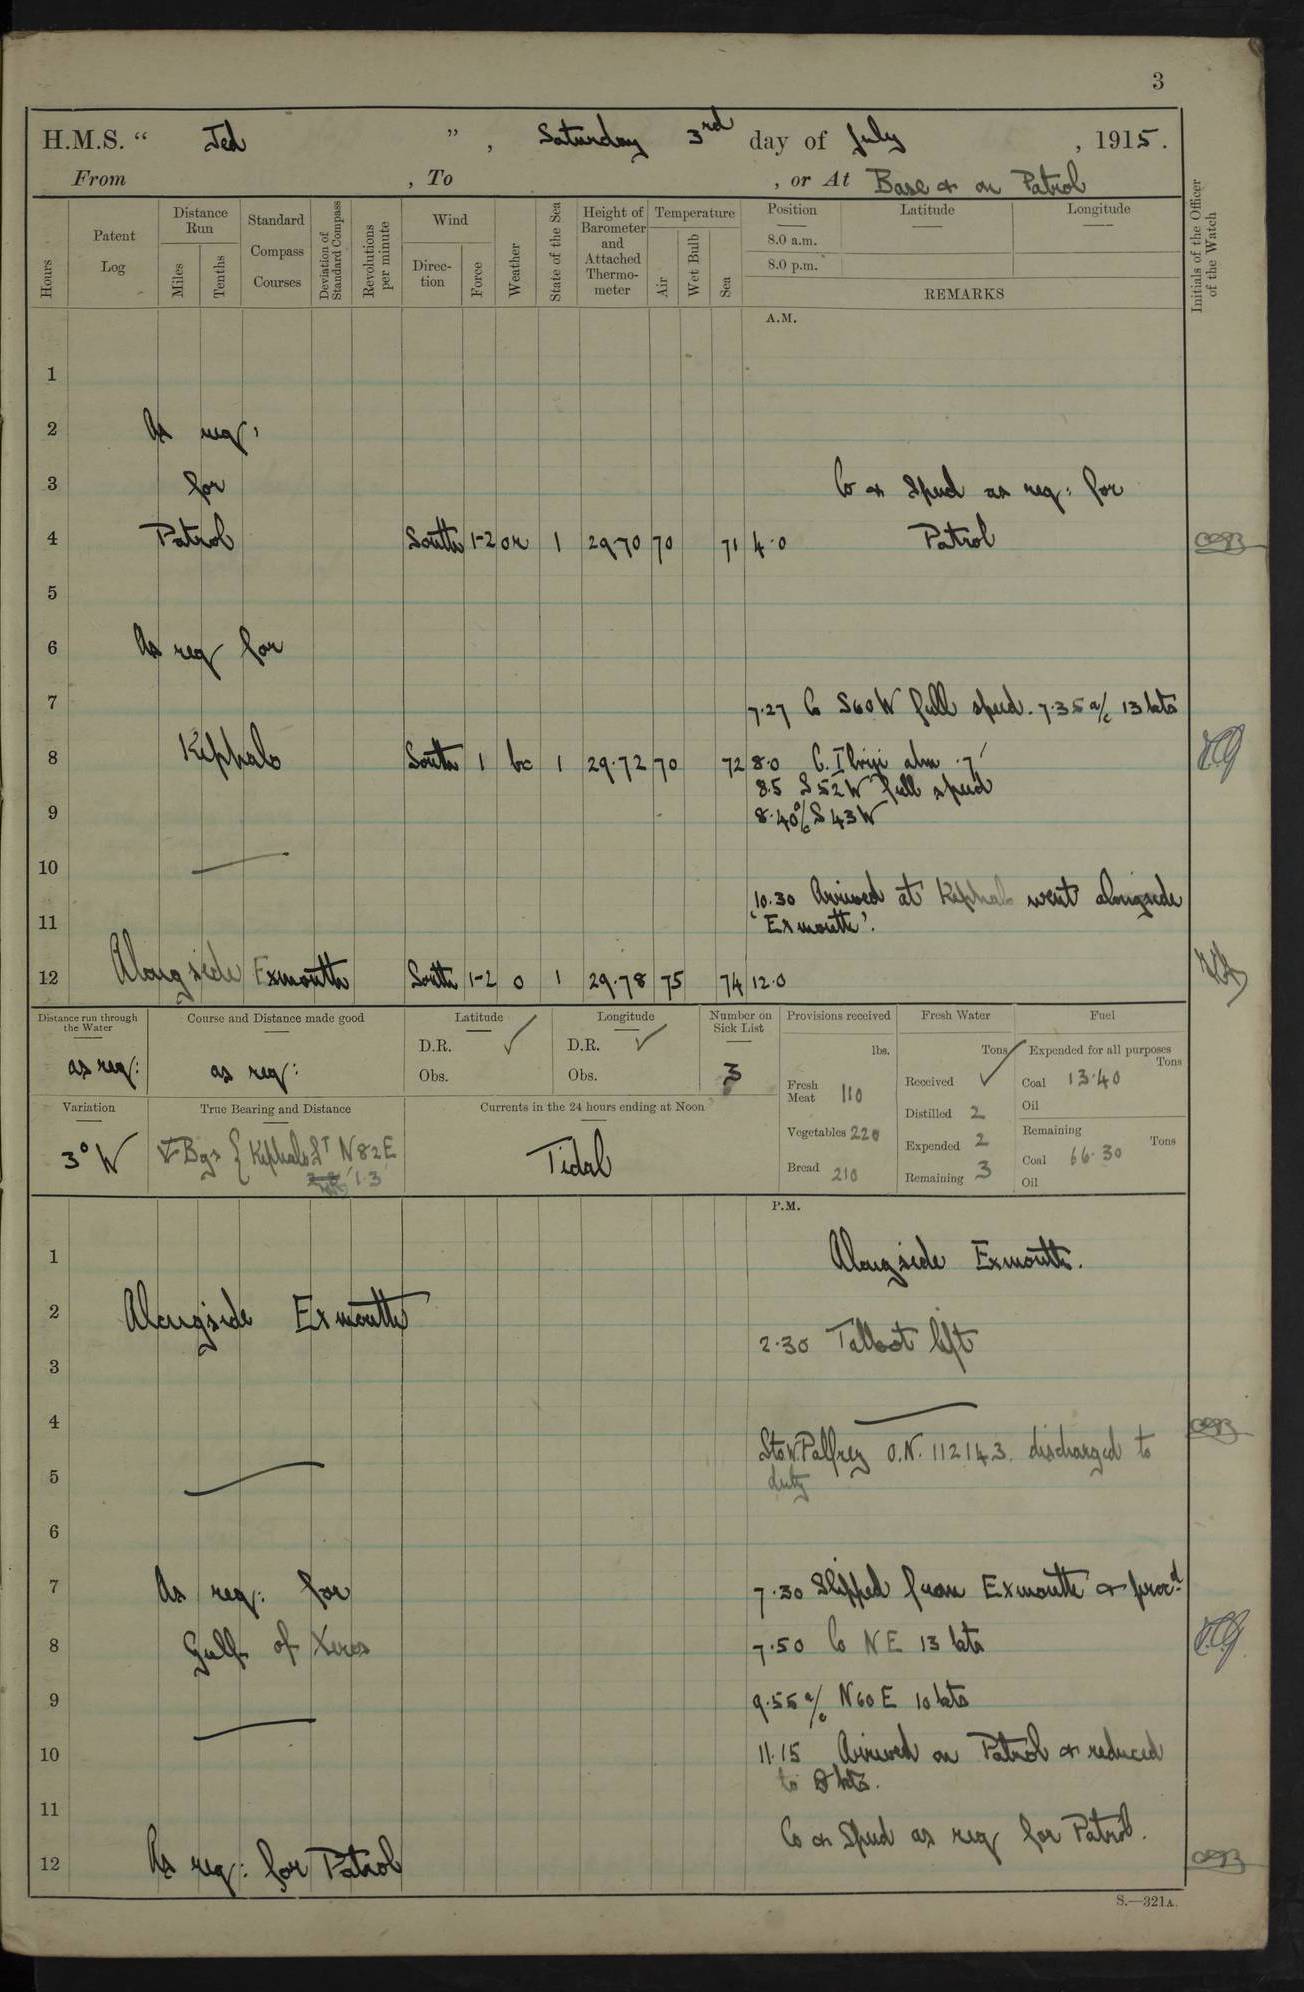 3
H.M.S. “ Jed ” , Saturday 3rd day of July , 1915.
From , To , or At Base & on Patrol
Hours
Patent Log
Distance Run
Miles
Tenths
Standard Compass Courses
Deviation of Standard Compass
Revolutions per minute
Wind
Direc-tion
Force
Weather
State of the Sea
Height of Barometer and Attached Thermo-meter
Temperature
Air
Wet Bulb
Sea
Position
8.0 a.m.
8.0 p.m.
Latitude
Longitude
REMARKS
Initials of the Officer of the Watch
A.M.
1
2 As req:
3 for Co & Speed as req: for
4 Patrol South 1-2 or 1 29.70 70 71 4.0 Patrol
5
6 As req for
7 7.27 Co S60W full speed. 7.35 a/c 13 kts
8 Kephalo South 1 bc 1 29.72 70 72 8.0 C. Ibriji abm .7'
8.5 S 52 W full speed
9 8.40 a/c S 43 W
10
10.30 Arrived at Kephalo went alongside
11 'Exmouth'.
12 Alongside Exmouth South 1-2 o 1 29.78 75 74 12.0
Distance run through the Water
as req:
Course and Distance made good
as req:
Latitude
D.R. ✓
Obs.
Longitude
D.R. ✓
Obs.
Number on Sick List
3
Provisions received
lbs.
Fresh Meat 110
Vegetables 220
Bread 210
Fresh Water
Tons
Received ✓
Distilled 2
Expended 2
Remaining 3
Fuel
Expended for all purposes
Tons
Coal 13.40
Oil
Remaining
Tons
Coal 66.30
Oil
Variation
3° W
True Bearing and Distance
Bgs { Kephalo Lt N82E
1.3'
Currents in the 24 hours ending at Noon
Tidal
P.M.
1 Alongside Exmouth.
2 Alongside Exmouth
2.30 Talbot left
3
4
Sto W. Palfrey O.N. 112143. discharged to
5 duty
6
7 As req: for 7.30 Slipped from Exmouth & procd
8 Gulf of Xeros 7.50 Co NE 13 kts
9 9.55 a/c N60E 10 kts
10 11.15 Arrived on Patrol & reduced
to 8 kts.
11
Co & Speed as req for Patrol.
12 As req: for Patrol
S.—321A.